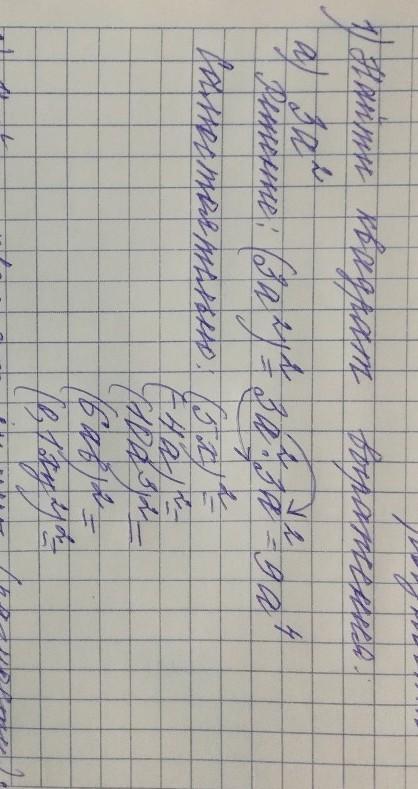 1) Найти квадрат выражения:
а) 3a²
Решение: (3a²)² = 3a²·3a² = 9a⁴
Самостоятельно: (5x)² =
(-4a)² =
(10a³)² =
(6ab)² =
(0,13xy²)² =